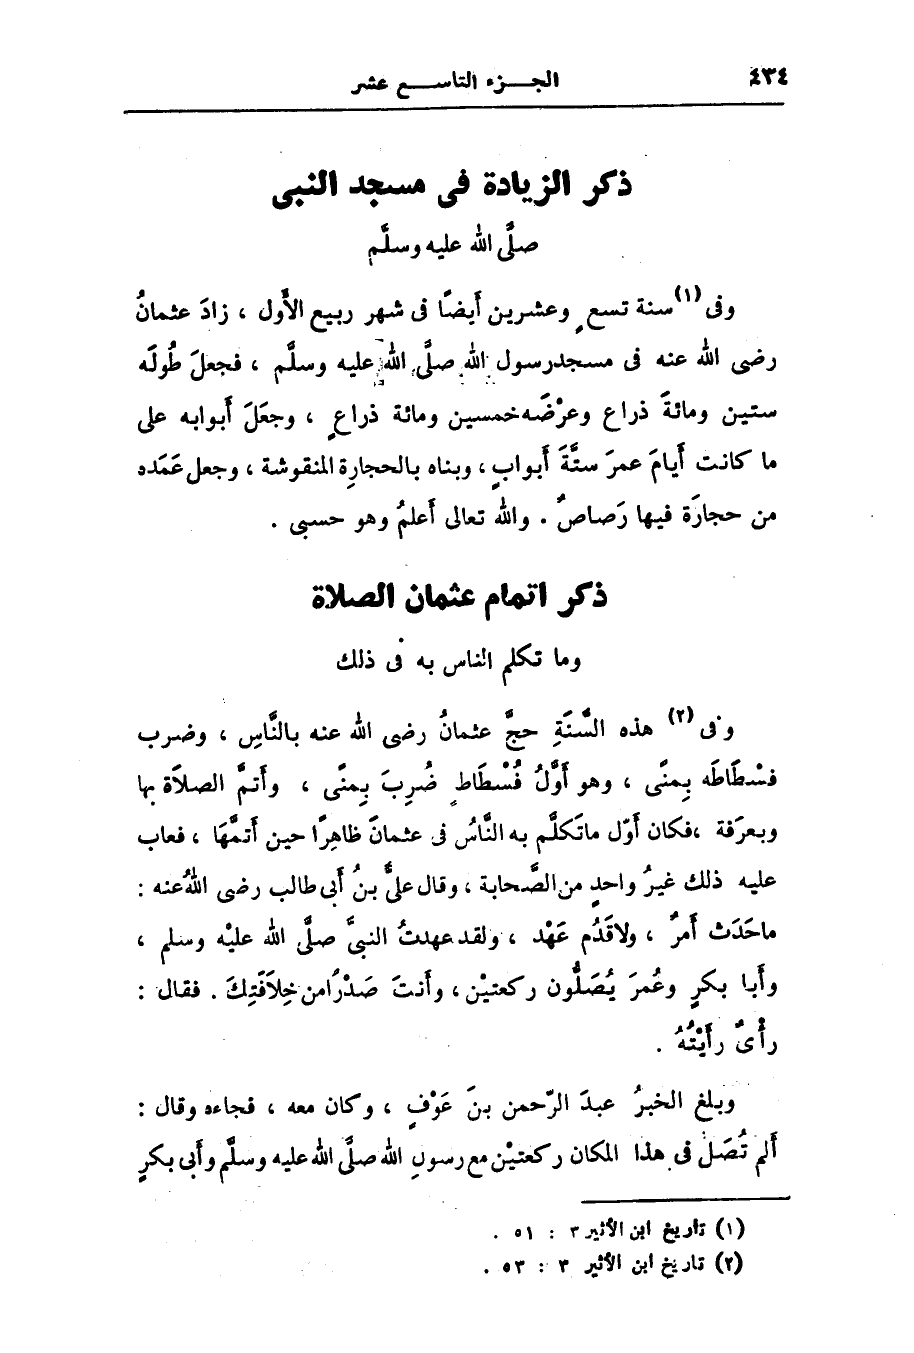 ٤٣٤
الجـــزء التاســـع عشر
ذكر الزيادة فى مسجد النبى
صلَّى الله عليه وسلَّم
وفى (١) سنة تسعٍ وعشرين أيضًا فى شهر ربيع الأول ، زادَ عثمانُ
رضى الله عنه فى مسجد رسول الله صلَّى الله عليه وسلَّم ، فجعلَ طُولَه
ستين ومائةَ ذراع وعرْضَه خمسين ومائة ذراعٍ ، وجعَلَ أبوابه على
ما كانت أيامَ عمرَ ستَّةَ أبوابٍ ، وبناه بالحجارةِ المنقوشة ، وجعل عَمَده
من حجارَة فيها رَصاصٌ . والله تعالى أعلمُ وهو حسبى .
ذكر اتمام عثمان الصلاة
وما تكلم الناس به فى ذلك
وفى (٢) هذه السَّنَةِ حجَّ عثمانُ رضى الله عنه بالنَّاسِ ، وضرب
فسْطَاطَه بِمنًى ، وهو أوَّلُ فُسْطَاطٍ ضُرِبَ بِمنًى ، وأتمَّ الصلاَة بها
وبعرَفة ، فكان أوّل ماتَكلَّم به النَّاسُ فى عثمانَ ظاهِرًا حين أتمَّهَا ، فعاب
عليه ذلك غيرُ واحدٍ من الصَّحابة ، وقال علىُّ بنُ أبى طالب رضى اللهُ عنه :
ماحَدَث أمرٌ ، ولاقَدُم عَهْد ، ولقد عهدتُ النبىَّ صلَّى الله عليْه وسلم ،
وأبا بكرٍ وعُمرَ يُصَلُّون ركعتيْن ، وأنتَ صَدْرًا من خِلاَفَتِكَ . فقال :
رأْىٌ رأَيْتُهُ .
وبلغ الخبرُ عبدَ الرّحمن بنَ عَوْفٍ ، وكان معه ، فجاءه وقال :
ألم تُصَلِّ فى هذا المكان ركعتيْن مع رسولِ الله صلَّى الله عليه وسلَّم وأبى بكرٍ
(١) تأريخ ابن الأثير ٣ : ٥١ .
(٢) تاريخ ابن الأثير ٣ : ٥٣ .